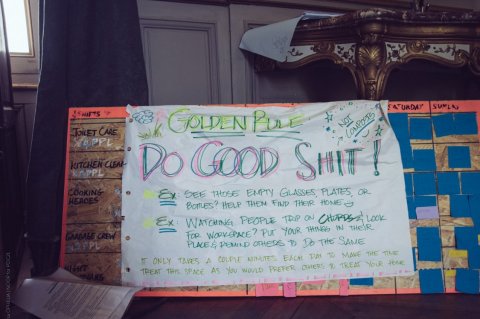 SHIFTS
TOILET CARE
KITCHEN CLEAN
COOKING
HEROES
GARBAGE CREW
SATURDAY SUNDAY
GOLDEN RULE
NOT
COMPLETE
DO GOOD SHIT!
EX: SEE THOSE EMPTY GLASSES, PLATES, OR
BOXES? HELP THEM FIND THEIR HOME
EX: WATCHING PEOPLE TROP ON CHORDS & LOOK
FOR WORKSPACE? PUT YOUR THINGS IN THEIR
PLACE & REMIND OTHERS TO DO THE SAME
IT ONLY TAKES A COUPLE MINUTES EACH DAY TO MAKE THE TIME
TREAT THIS SPACE AS YOU WOULD PREFER OTHERS TO TREAT YOUR HOME